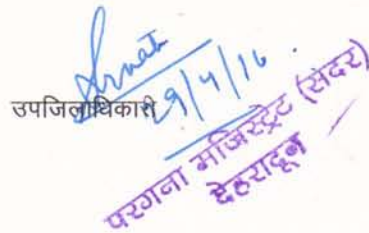 29/4/16
उपजिलाधिकारी
परगना मजिस्ट्रेट (सदर)
देहरादून